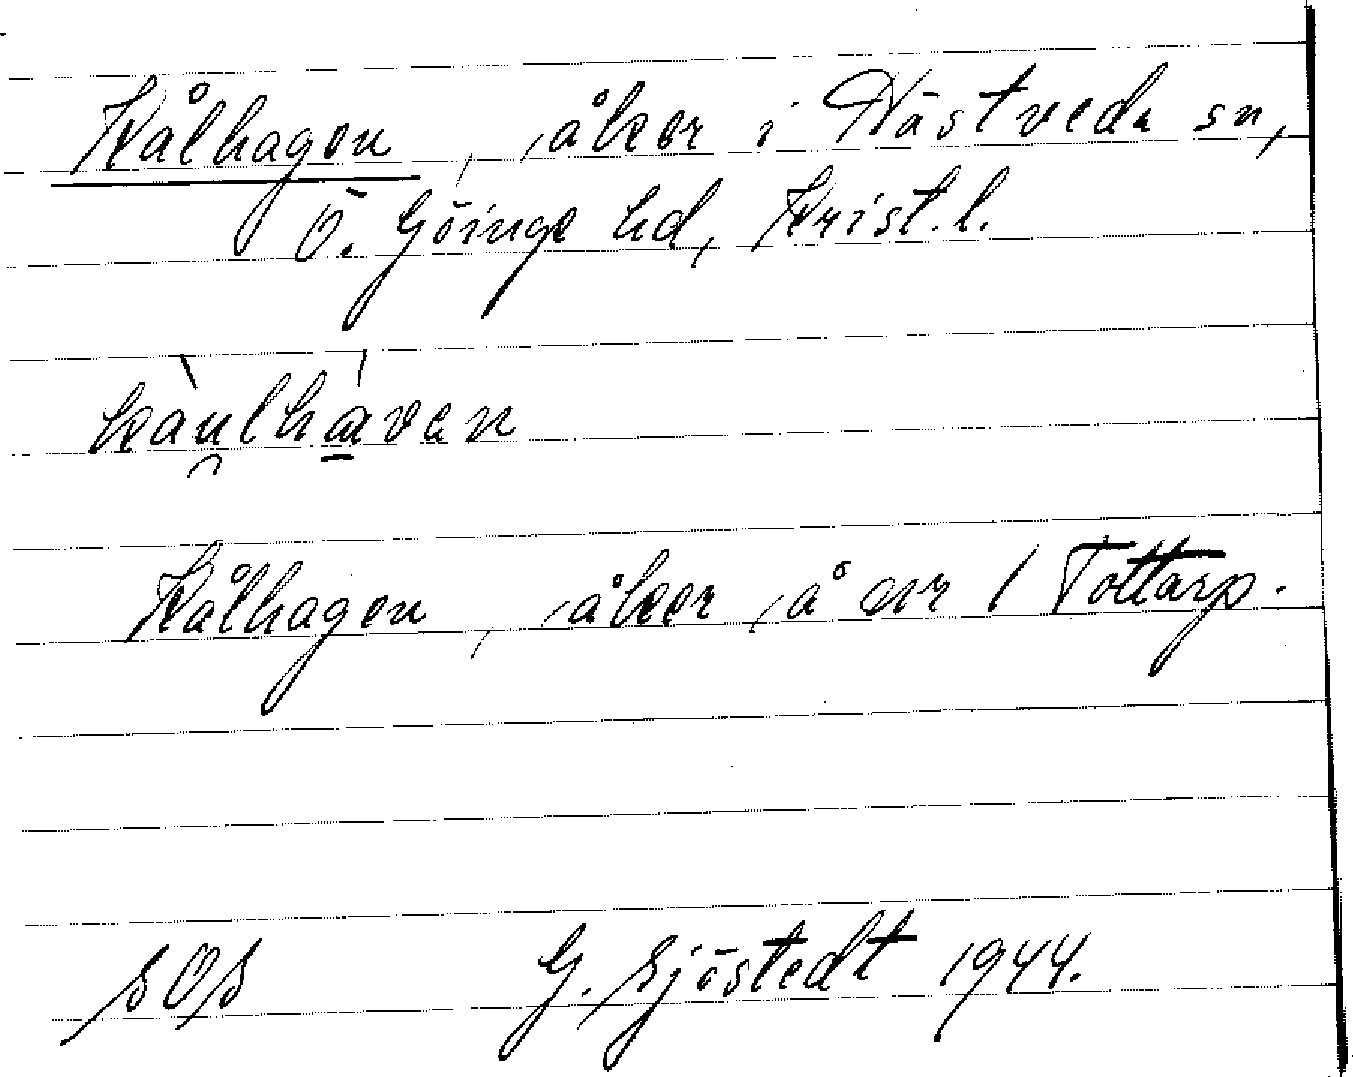 Kålhagen, åker i Hästveda sn,
Ö. Göinge hd, Krist. l.
kàu̯lhá̱ven
Kålhagen, åker, å nr 1 Tottarp.
SOS G. Sjöstedt 1944.